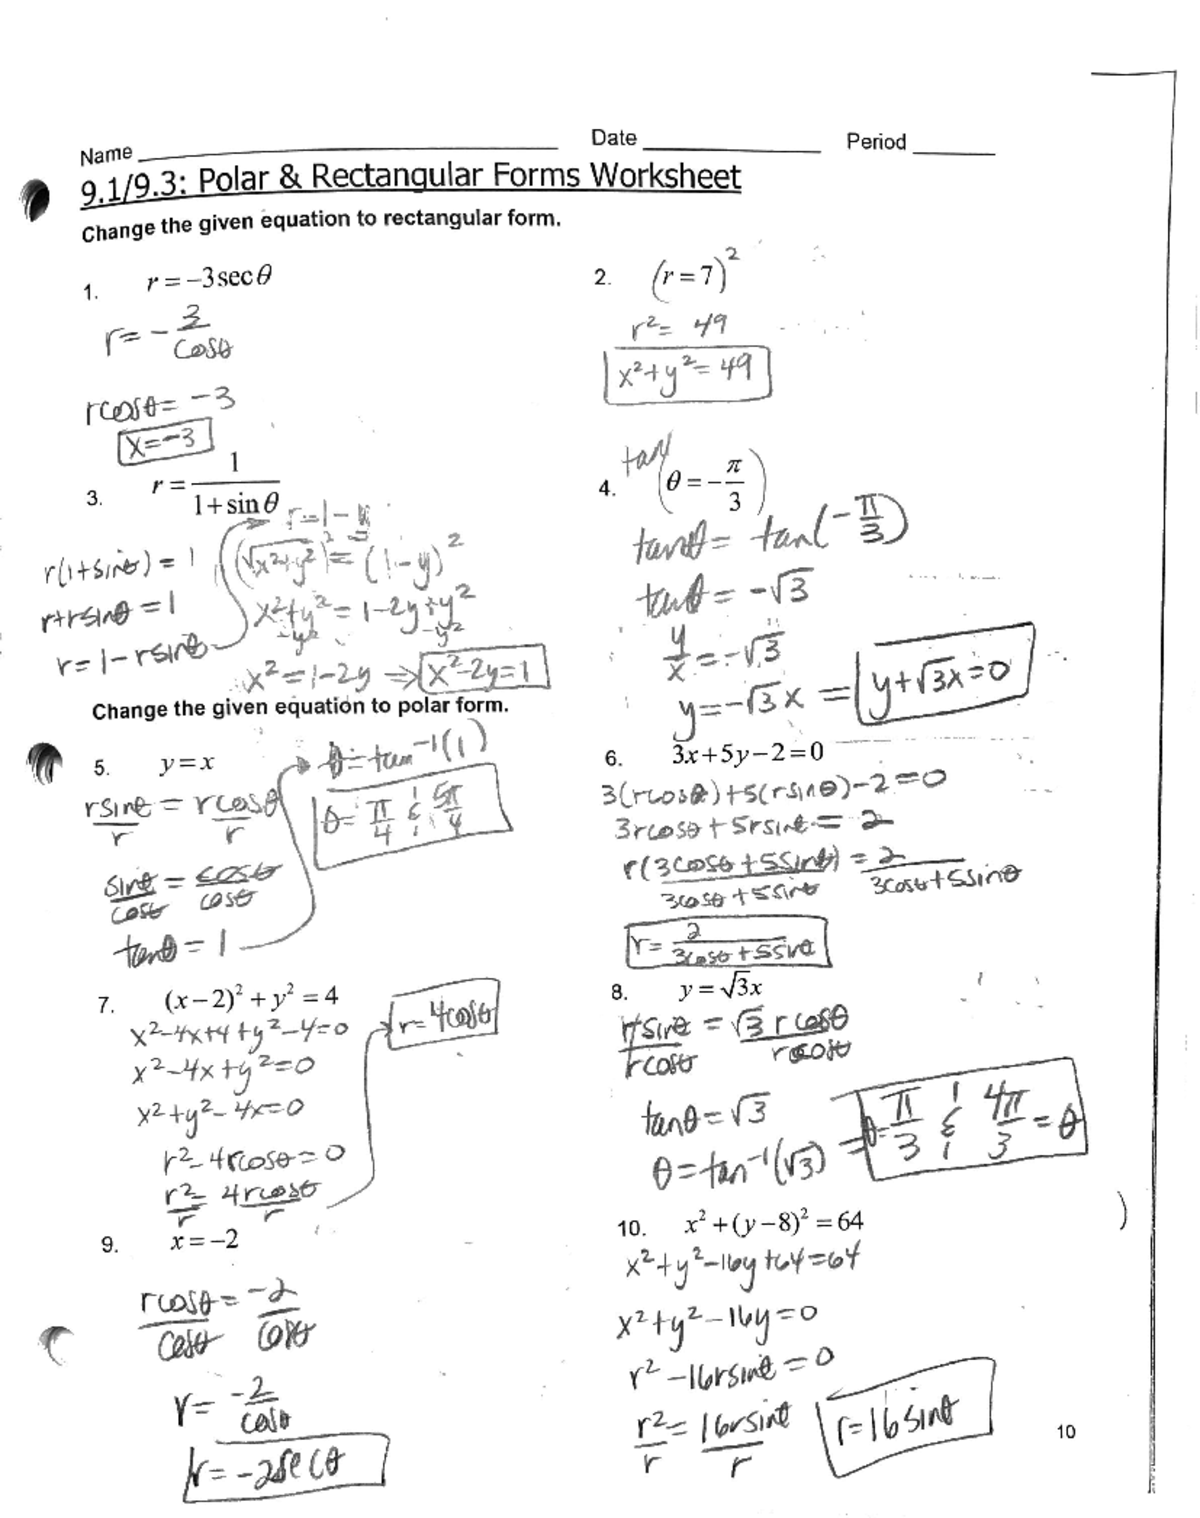 Name ______ Date ______ Period ______
9.1/9.3: Polar & Rectangular Forms Worksheet
Change the given equation to rectangular form.
1. r = -3 sec θ
r = - 3/cosθ
rcosθ = -3
x = -3
2. (r = 7)²
r² = 49
x² + y² = 49
3. r = 1/(1 + sin θ)
r(1+sinθ) = 1
r+rsinθ = 1
r = 1 - rsinθ
r = 1 - y
(√x²+y²)² = (1-y)²
x²+y² = 1-2y+y²
-y² -y²
x² = 1-2y ⇒ x²-2y=1
4. tan (θ = -π/3)
tanθ = tan(-π/3)
tanθ = -√3
y/x = -√3
y = -√3x = y+√3x=0
Change the given equation to polar form.
5. y = x
rsinθ/r = rcosθ/r
sinθ/cosθ = cosθ/cosθ
tanθ = 1
θ = tan⁻¹(1)
θ = π/4 & 5π/4
6. 3x + 5y - 2 = 0
3(rcosθ)+5(rsinθ)-2=0
3rcosθ + 5rsinθ = 2
r(3cosθ+5sinθ)/3cosθ+5sinθ = 2/3cosθ+5sinθ
r = 2/3cosθ+5sinθ
7. (x - 2)² + y² = 4
x²-4x+4+y²-4=0
x²-4x+y²=0
x²+y²-4x=0
r²-4rcosθ=0
r²/r = 4rcosθ/r
r = 4cosθ
8. y = √3x
rsinθ/rcosθ = √3 rcosθ/rcosθ
tanθ = √3
θ = tan⁻¹(√3) = θ= π/3 & 4π/3 = θ
9. x = -2
rcosθ/cosθ = -2/cosθ
r = -2/cosθ
r = -2secθ
10. x² + (y - 8)² = 64
x²+y²-16y+64=64
x²+y²-16y=0
r²-16rsinθ=0
r²/r = 16rsinθ/r
r=16sinθ
10